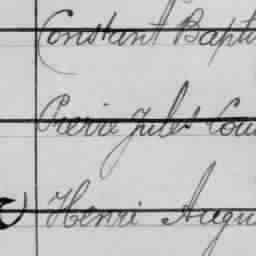 Constant Bapti
Pierre Jules Loui
Henri Augu